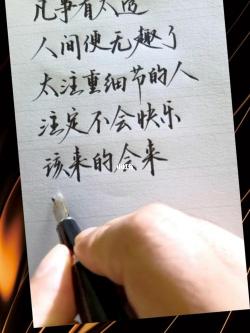 凡事看太透
人间便无趣了
太注重细节的人
注定不会快乐
该来的会来